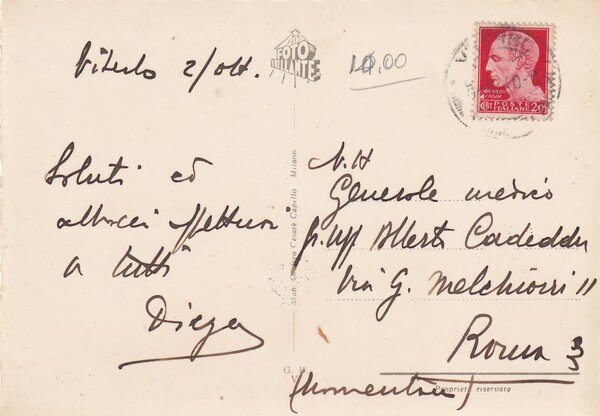 Viterbo 2/ott.
FOTO
BRILLANTE
10,00
POSTE
ITALIANE
CENT 20
Saluti ed
abbracci affettuosi
a tutti
Diega
N.H
Generale medico
Gr. Uff Alberto Cadeddu
Via G. Melchiorri 11
Roma
(Nomentana)
Stab. Cesare Capello Milano
Proprietà riservata